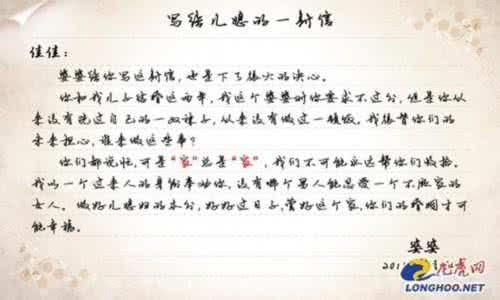 写给儿媳的一封信
佳佳：
婆婆给你写这封信，也是下了很大的决心。
你和我儿子结婚这两年，我这个婆婆对你要求不过分，但是你从
来没有洗过自己的一双袜子，从来没有做过一顿饭，我替你们的
未来担心，谁来做这些事？
你们都说忙，可是“家”总是“家”，我们不可能永远帮你们收拾。
我以一个过来人的身份奉劝你，没有哪个男人能忍受一个不顾家的
女人。做好儿媳妇的本分，好好过日子，管好这个家，你们的婚姻才可
能幸福。
婆婆
201
龙虎网
LONGHOO.NET